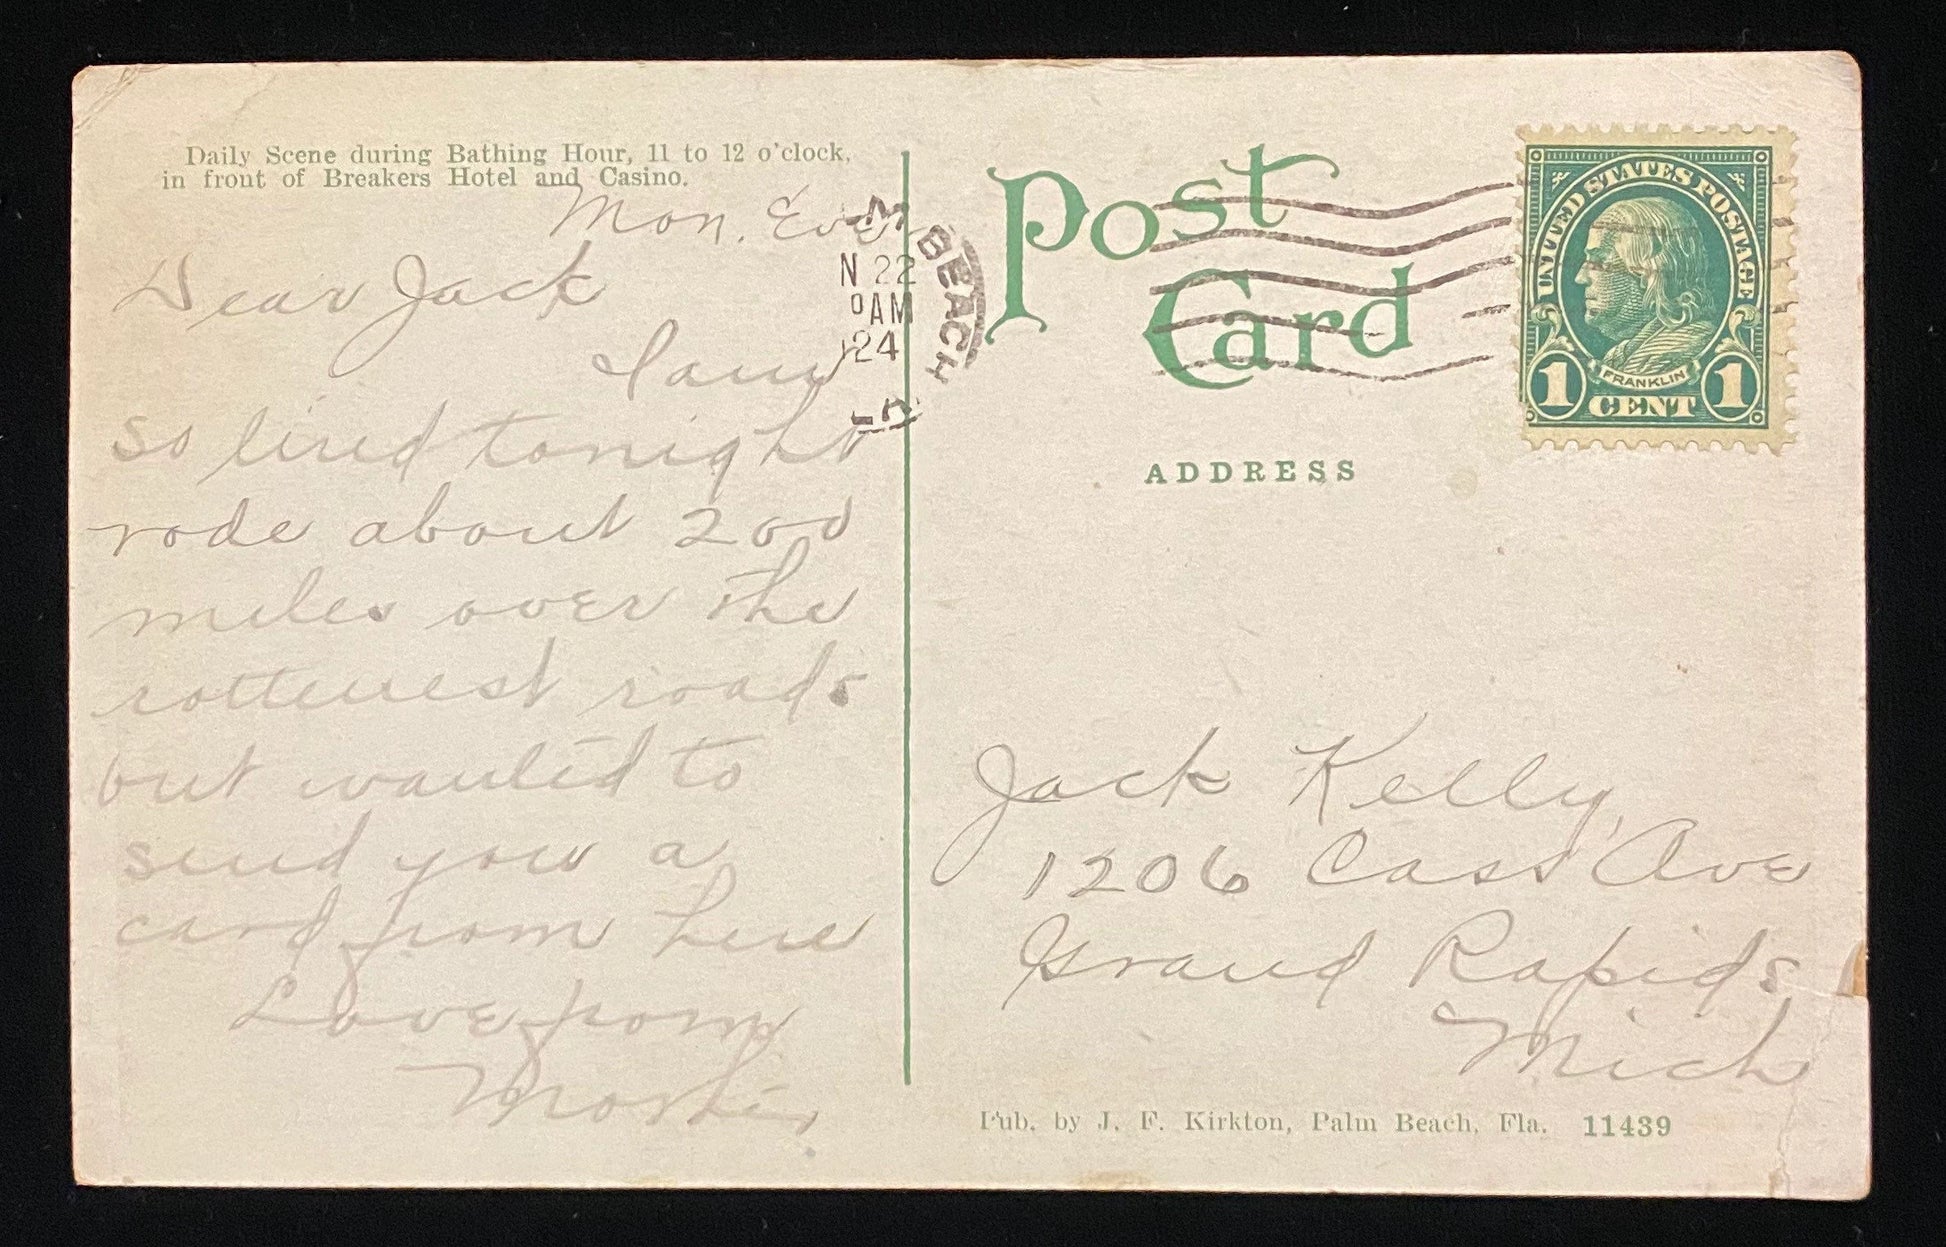 Daily Scene during Bathing Hour, 11 to 12 o'clock,
in front of Breakers Hotel and Casino.
Mon. Eve
Dear Jack
I am
so tired tonight
rode about 200
miles over the
rottenest roads
but wanted to
send you a
card from here
Love from
Mother
M BEACH
N 22
AM
24
Post
Card
UNITED STATES POSTAGE
FRANKLIN
1 CENT 1
ADDRESS
Jack Kelly,
1206 Cass Ave
Grand Rapids
Mich
Pub. by J. F. Kirkton, Palm Beach, Fla. 11439